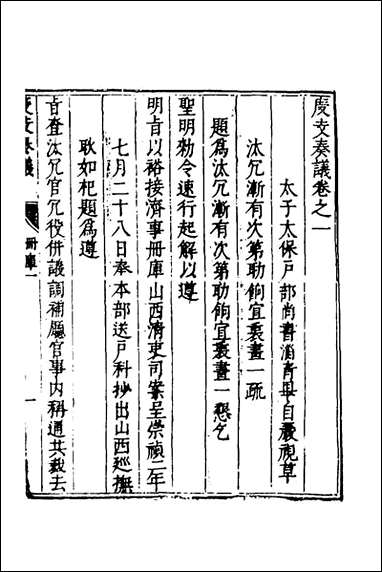 度支奏議卷之一
太子太保戶部尚書滔青畢自嚴視草
汰冗漸有次第助餉宜襄畫一疏
題爲汰冗漸有次第助餉宜襄畫一懇乞
聖明勅令速行起解以遵
明旨以裕接濟事冊庫山西清吏司案呈崇禎二年
七月二十八日奉本部送戶科抄出山西廵撫
耿如杞題爲遵
旨查汰冗官冗役併議調補廳官事内稱通共裁去
度支奏議
冊庫一
一